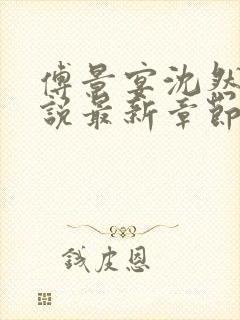 傅景宴沈然
說最新章節
錢皮恩